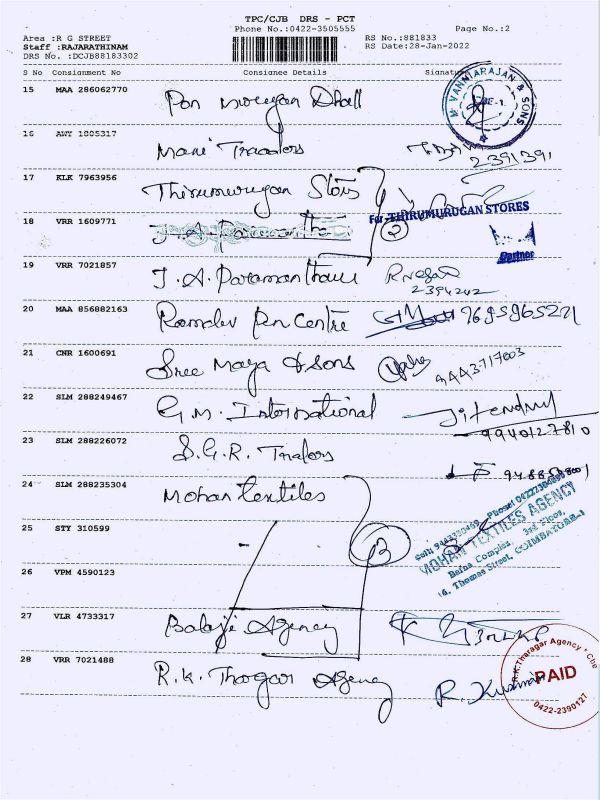 TPC/CJB DRS - PCT
Phone No.:0422-3505555 Page No.:2
Area :R G STREET RS No.:881833
Staff :RAJARATHINAM RS Date:28-Jan-2022
DRS No. :DCJB88183302
S No Consignment No Consignee Details Signatu
15 MAA 286062770 Pon Murugan Dhall
M. VANNIARAJAN & SONS
16 AWY 1005317 Mani Traders 2391391
17 KLK 7963956 Thirumurugan Stores
For THIRUMURUGAN STORES
Partner
18 VRR 1609771 J.A. Paramantha 2
19 VRR 7021857 J.A. Paramantham
2394242
20 MAA 856882163 Ramdev Pen Centre 7695965271
21 CNR 1600691 Sree Maya & Sons 9443717003
22 SLM 288249467 G.M. International Jitendra
9940127810
23 SLM 288226072 S.G.R. Traders
24 SLM 288235304 Mohan textiles
MOHAN TEXTILES AGENCY
Bafna Complex, 3rd Floor,
16, Thomas Street, COIMBATORE-1
25 STY 310599 3
26 VPM 4590123
27 VLR 4733317 Balaji Agency
28 VRR 7021488 R.K. Thagar Agency R. Kumar
R.K.Tharagar Agency * Cbe
PAID
0422-2390127